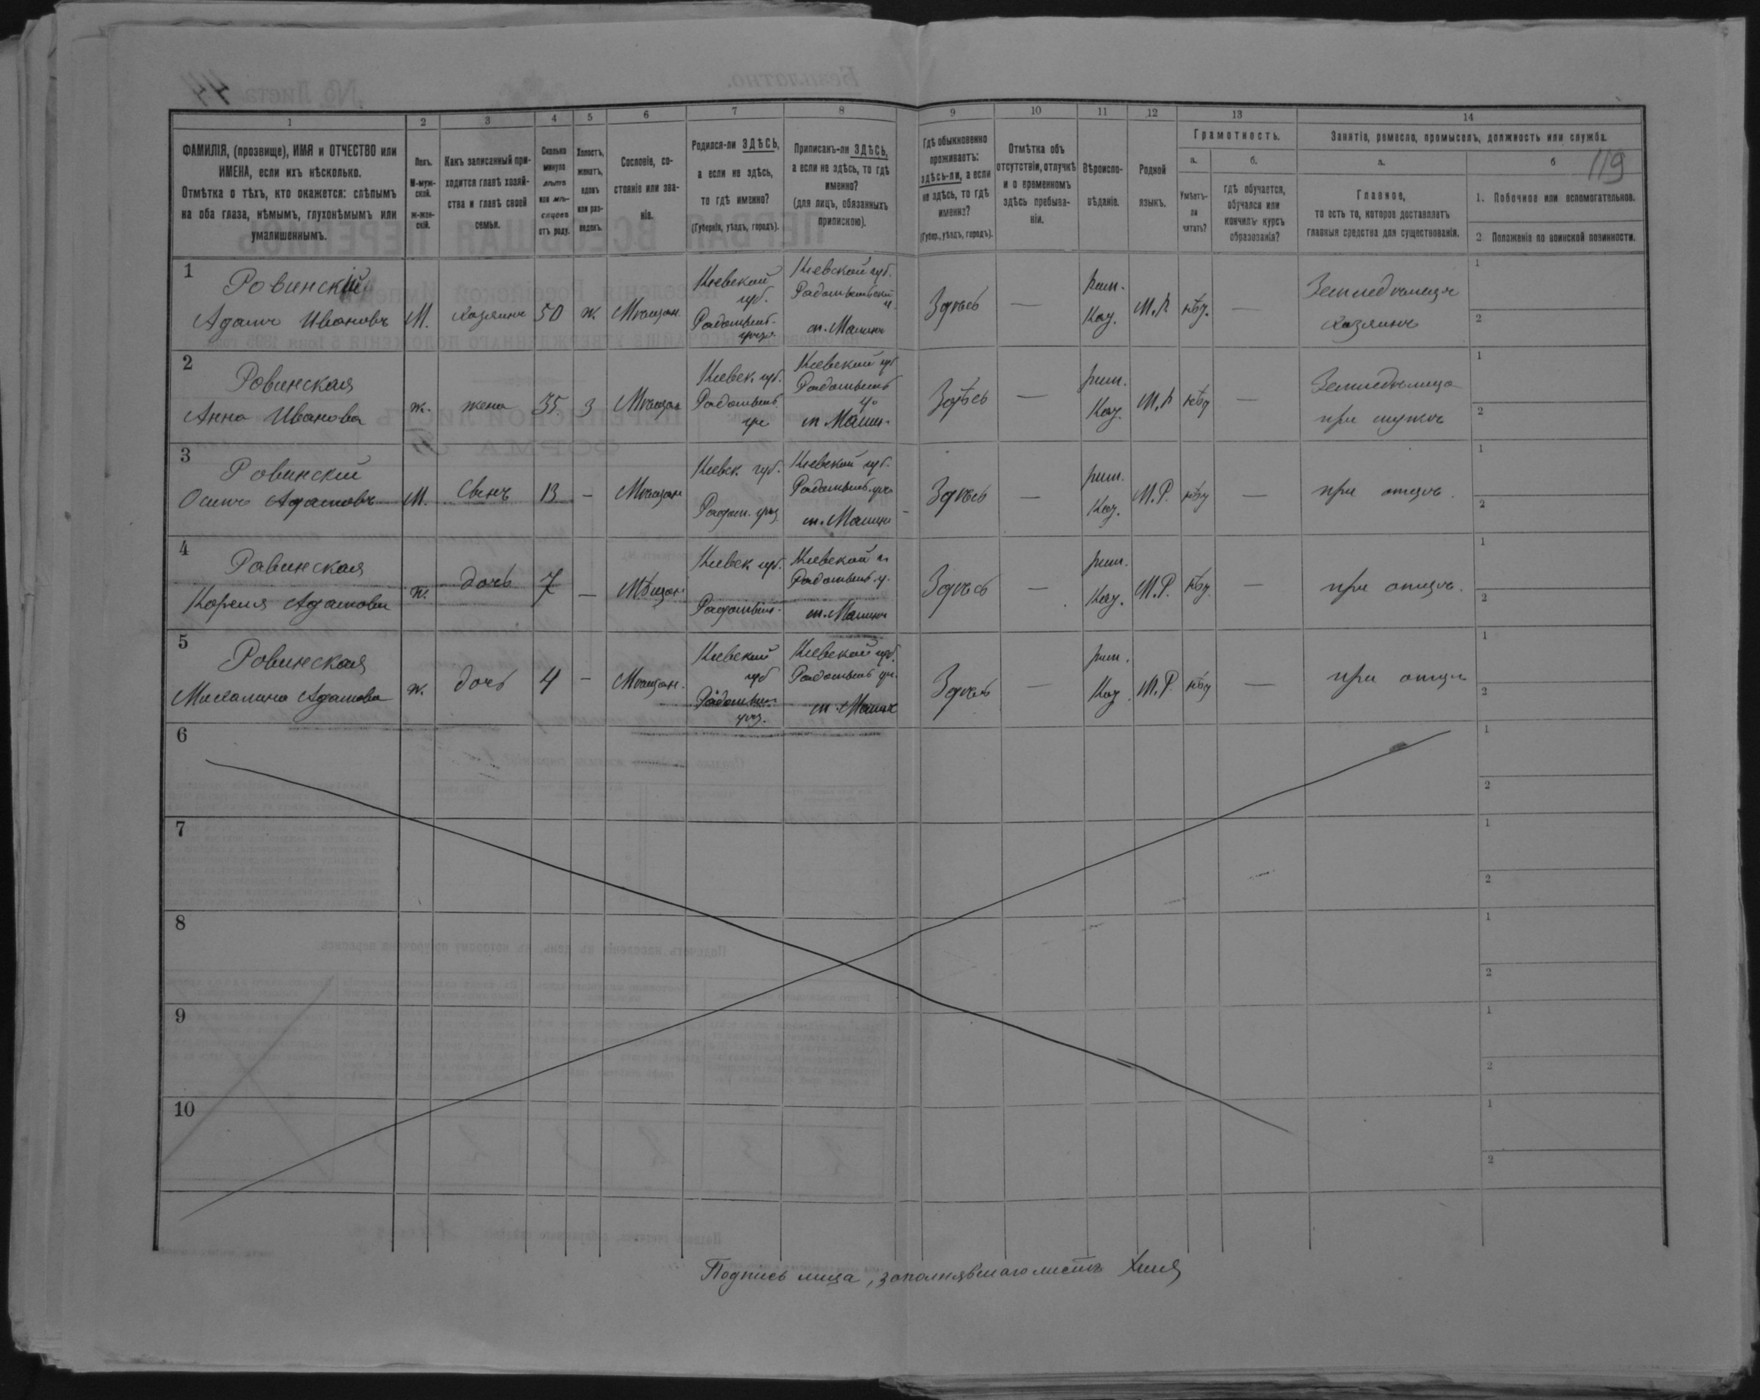 119
1 2 3 4 5 6 7 8 9 10 11 12 13 14
ФАМИЛІЯ, (прозвище), ИМЯ и ОТЧЕСТВО или
ИМЕНА, если ихъ нѣсколько.
Отмѣтка о тѣхъ, кто окажется: слѣпымъ
на оба глаза, нѣмымъ, глухонѣмымъ или
умалишеннымъ.
Полъ.
М-муж-
ской.
ж-жен-
скій.
Какъ записанный при-
ходится главѣ хозяй-
ства и главѣ своей
семьи.
Сколько
минуло
лѣтъ
или мѣ-
сяцевъ
отъ роду.
Холостъ,
женатъ,
вдовъ
или раз-
веденъ.
Сословіе, со-
стояніе или зва-
ніе.
Родился-ли ЗДѢСЬ,
а если не здѣсь,
то гдѣ именно?
(Губернія, уѣздъ, городъ).
Приписанъ-ли ЗДѢСЬ,
а если не здѣсь, то гдѣ
именно?
(для лицъ, обязанныхъ
припискою).
Гдѣ обыкновенно
проживаетъ:
здѣсь-ли, а если
не здѣсь, то гдѣ
именно?
(Губер., уѣздъ, городъ).
Отмѣтка объ
отсутствіи, отлучкѣ
и о временномъ
здѣсь пребыва-
ніи.
Вѣроиспо-
вѣданіе.
Родной
языкъ.
Грамотность.
а.
Умѣетъ-
ли
читать?
б.
гдѣ обучается,
обучался или
кончилъ курсъ
образованія?
Занятіе, ремесло, промыселъ, должность или служба.
а.
Главное,
то есть то, которое доставляетъ
главныя средства для существованія.
б
1. Побочное или вспомогательное.
2. Положеніе по воинской повинности.
1
Ровинскій
Адамъ Ивановъ
М.
хозяинъ
50
ж.
Мѣщан.
Кіевской
губ.
Радомысл.
уѣзд.
Кіевской губ.
м. Малинъ
Здѣсь
—
рим.
Кат.
нѣт.
—
хозяинъ
1
2
2
Ровинская
Анна Иванова
ж.
жена
35
З
Мѣщан
Кіевск. губ.
Радомысл.
Кіевской губ
Радомысл
м. Малин.
Здѣсь
—
рим.
Кат.
нѣт
—
при мужѣ
1
2
3
Ровинскій
Осипъ Адамовъ
М.
сынъ
13
—
Мѣщан
Кіевск. губ.
Кіевской губ.
м. Малинъ
Здѣсь
—
рим.
Кат.
М.Р.
нѣт
—
при отцѣ.
1
2
4
Ровинская
Адамова
ж.
дочь
7
—
Мѣщан
Кіевск. губ.
Радомысл.
Кіевской г.
Радомысл. у.
м. Малинъ
Здѣсь
—
рим.
Кат.
М.Р.
нѣт.
—
при отцѣ.
1
2
5
Ровинская
Михалина Адамова
ж.
дочь
4
—
Мѣщан.
Кіевской
губ
уѣз.
Кіевской губ.
м. Малин
Здѣсь
—
рим.
Кат.
М.Р.
нѣт
—
при отцѣ
1
2
6
1
2
7
1
2
8
1
2
9
1
2
10
1
2
Подпись лица, заполнявшаго листъ